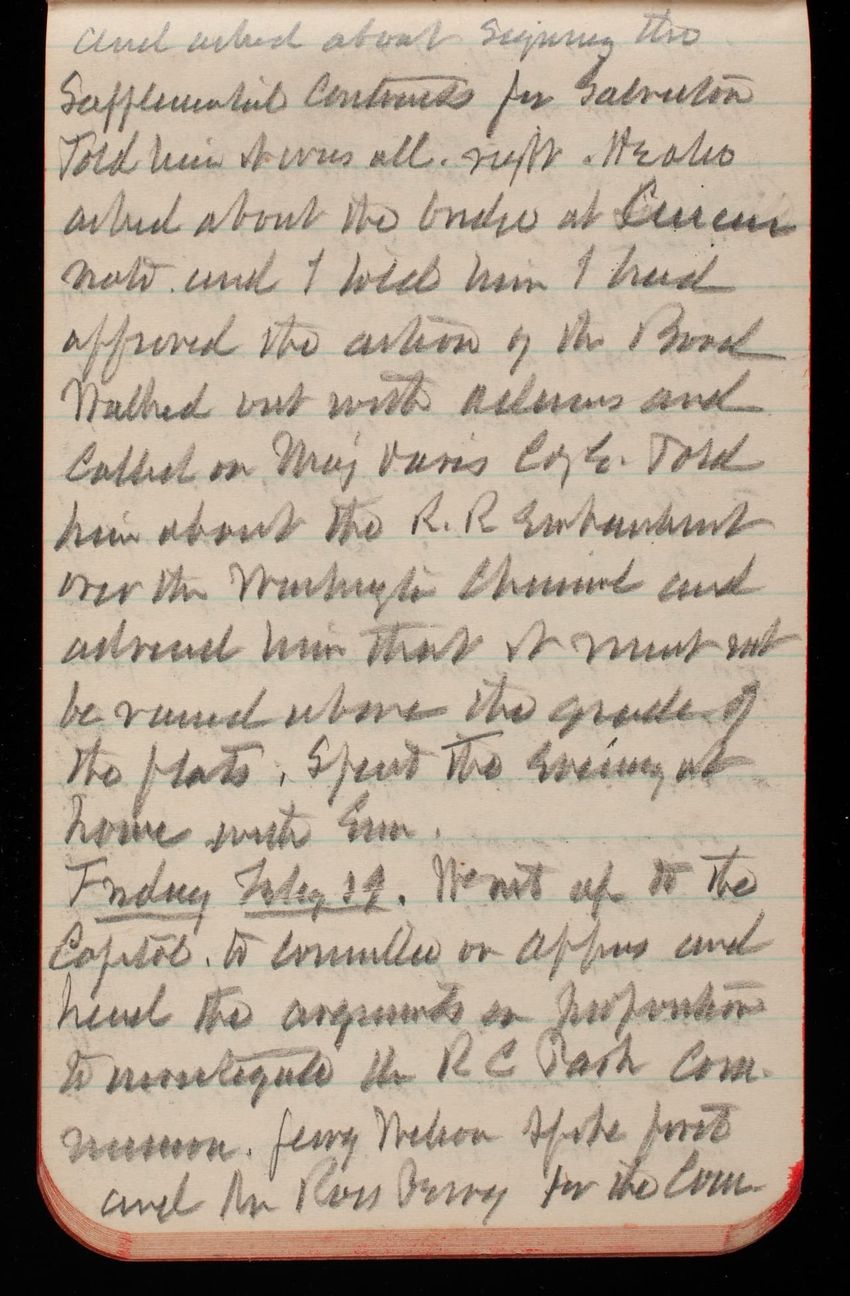 and asked about signing the
Supplemental Contracts for Galveston
Told him it was all. right. He also
asked about the bridge at Cincin
nati. and I told him I had
approved the action of the Board
Walked out with Adams and
Called on Maj Davis C of E. Told
him about the R. R Embankment
over the Washington Channel and
advised him that it must not
be raised above the grade of
the flats. Spent the Evening at
home with Em.
Friday Feby 19. Went up to the
Capitol. to Committee on Appns and
heard the arguments on proposition
to investigate the R C Park Com-
mission. Genrg Nelson spoke first
and Mr Ross Perry for the Com-